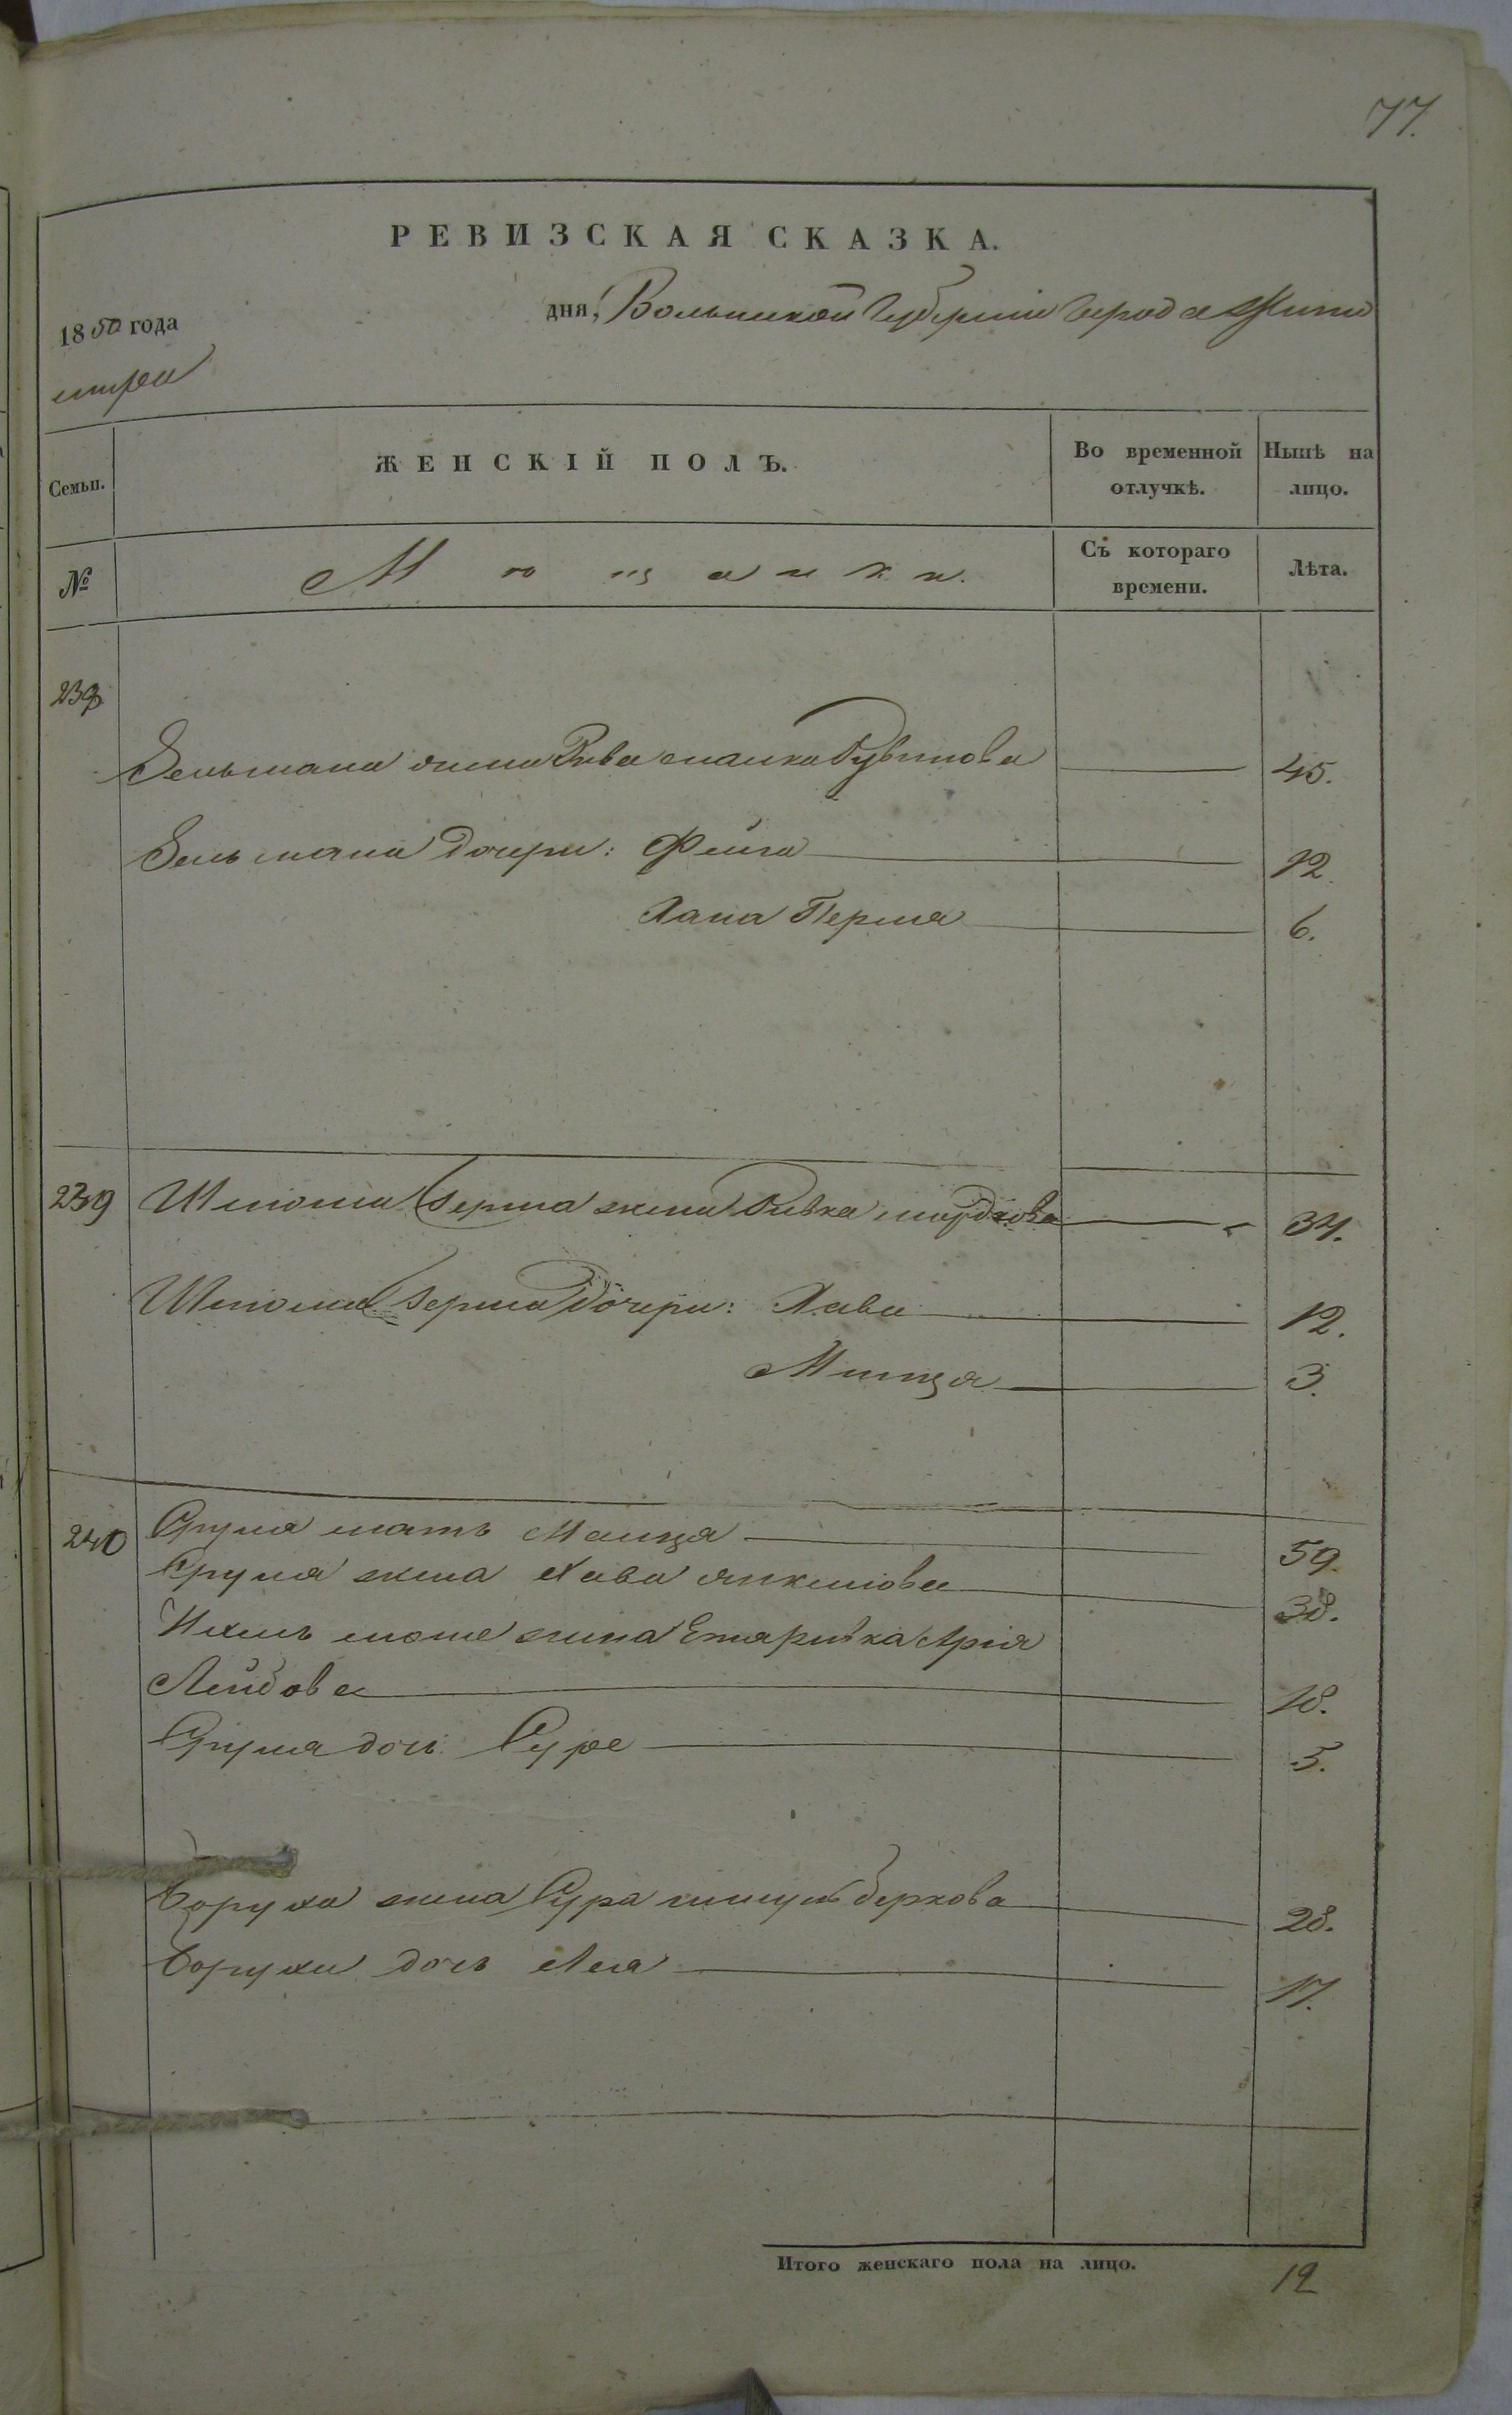 77.
РЕВИЗСКАЯ СКАЗКА.
1850 года дня, Волынской Губернии Города Жито
мира
Семьи. ЖЕНСКІЙ ПОЛЪ. Во временной отлучкѣ. Нынѣ на лицо.
№ Мѣщанки. Съ котораго времени. Лѣта.
238
Зельмана жена Рива Рувинова 45.
Зельмана дочери: Фейга 12.
Хана Перля 6.
239 Шлиома Герша жена Ривка Мордкова 34.
Шлиома Герша дочери: Хава 12.
Минця 3.
240 Сруля мать Маиця 59.
Сруля жена Хава Янкелiова 38.
Ихиль жена Эта Ривка Арія
Лейбова 18.
Сруля дочь Суре 5.
Боруха жена Сура Беркова 28.
Боруха дочь Лея 17.
Итого женскаго пола на лицо. 12